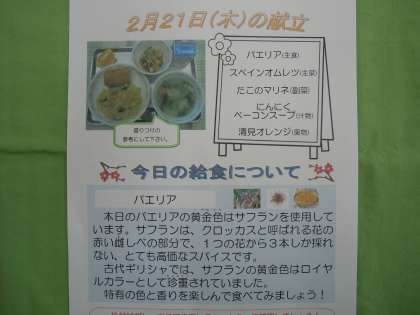 2月21日(木)の献立
パエリア(主食)
スペインオムレツ(主菜)
たこのマリネ(副菜)
にんにく
ベーコンスープ(汁物)
清見オレンジ(果物)
盛りつけの
参考にして下さい。
今日の給食について
パエリア
本日のパエリアの黄金色はサフランを使用して
います。サフランは、クロッカスと呼ばれる花の
赤い雌しべの部分で、1つの花から3本しか採れ
ない、とても高価なスパイスです。
古代ギリシャでは、サフランの黄金色はロイヤ
ルカラーとして珍重されていました。
特有の色と香りを楽しんで食べてみましょう!